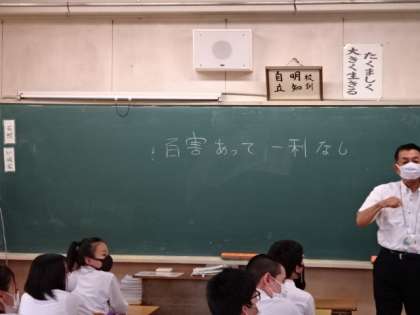 校訓
自立
明知
たくましく
大きく生きる
！百害あって一利なし